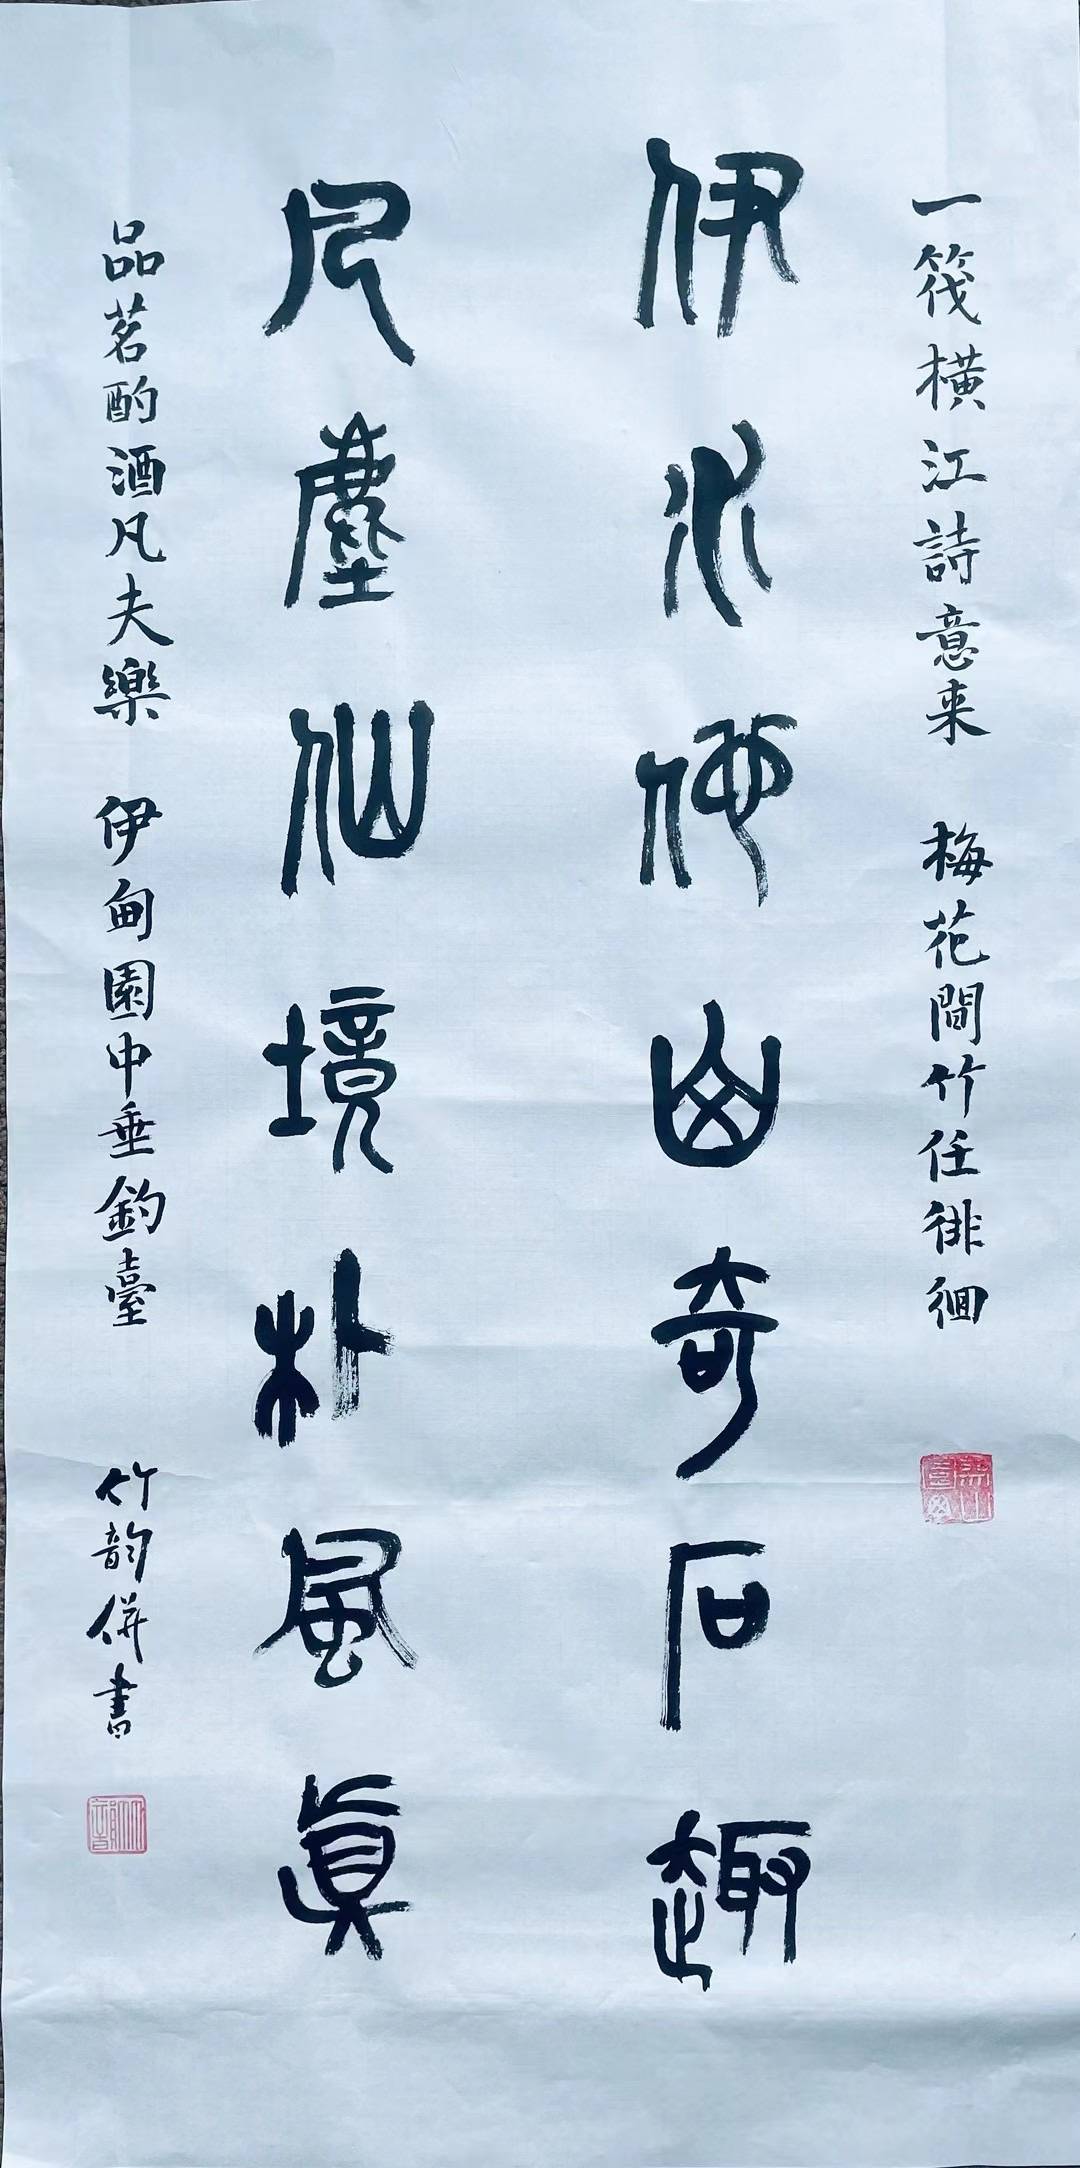 一筏橫江詩意来 梅花間竹任徘徊
伊水他山奇石趣
凡塵仙境朴風真
品茗酌酒凡夫樂 伊甸園中垂釣臺
竹韵併書